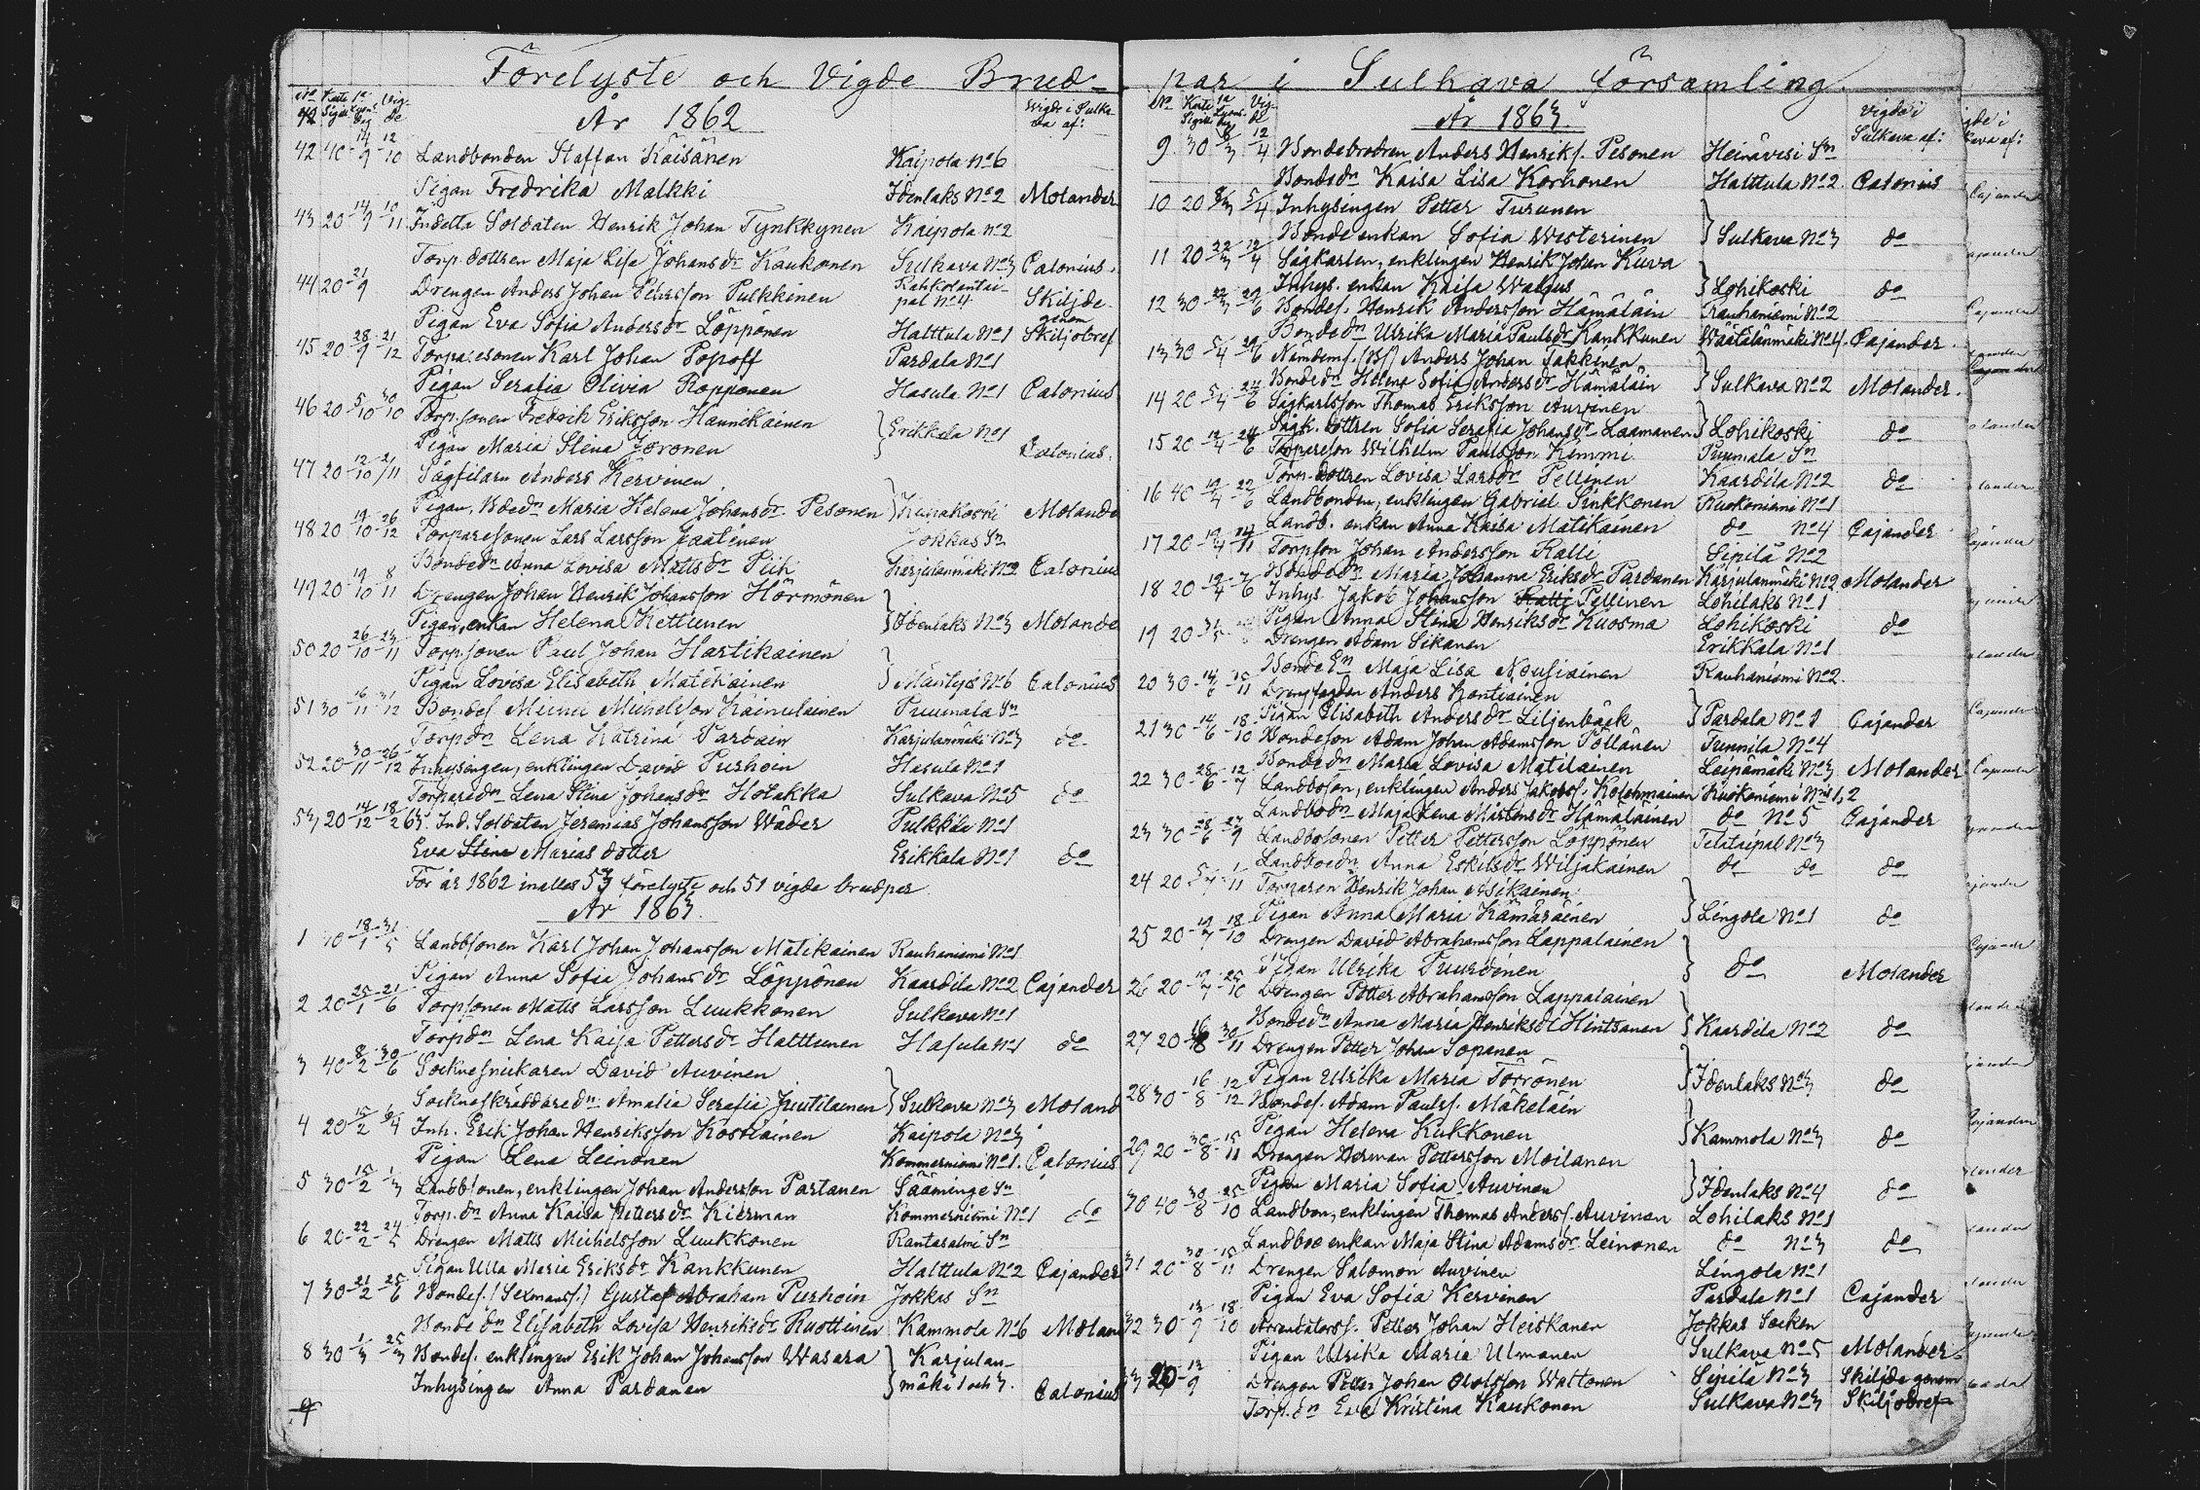 Förelyste och Vigde Brud-
År 1862
Vigde i Sulka-
va af:
42 40 14/9 12/10 Landbonden Staffan Käisänen Kaipola No 6
Pigan Fredrika Malkki Idenlaks No 2 Molander
43 20 14/9 10/11 Indelta Soldaten Henrik Johan Tynkkynen Kaipola No 2
Torp. dottren Maja Lisa Johansdr Kaukonen Sulkava No 3 Calonius
44 20 21/9 Drengen Anders Johan Petersson Pulkkinen pal No 4 Skiljde
Pigan Eva Sofia Andersdr Löppönen Halttula No 1 genom Skiljobref
45 20 28/9 21/12 Torparesonen Karl Johan Popoff Pardala No 1
Pigan Serafia Olivia Ropponen Hasula No 1 Calonius
46 20 5/10 30/10 Torpsonen Fredrik Eriksson Hannikainen } Erikkala No 1
Pigan Maria Stina Joronen Calonius
47 20 12/10 2/11 Sågfilarn Anders Kervinen
Pigan, Bdedn Maria Helena Johansdr Pesonen Molande
48 20 19/10 26/12 Torparesonen Lars Larsson Jaatinen Jokkas Sn
Bondedn Anna Lovisa Mattsdr Piih Karjulanmäki No 2 Calonius
49 20 19/10 8/11 Drengen Johan Henrik Johansson Hörmönen
Pigan, enkan Helena Kettunen } Idenlaks No 3 Molande
50 20 26/10 23/11 Torpsonen Paul Johan Hartikainen
Pigan Lovisa Elisabeth Matikainen } No 6 Calonius
51 30 16/11 31/12 Bondes. Michel Michelsson Kainulainen Puumala Sn
Torpdn Lena Katrina Pardaen Karjulanmäki No 3 do
52 20 30/11 26/12 Inhysengen, enklingen David Purhoin Hasula No 1
Torparedn Lena Stina Johansdr Hotakka Sulkava No 5 do
53 20 14/12 18/2 63. Ind. Soldaten Jeremias Johansson Wäder Pulkkila No 1
Eva Stena Marias dotter Erikkala No 1 do
För år 1862 inalles 53 förelyste och 51 vigde brudpar
År 1863.
1 40 18/1 31/5 Landbsonen Karl Johan Johansson Matikainen Rauhaniemi No 1
Pigan Anna Sofia Johansdr Löppönen Kaardila No 2 Cajander
2 20 25/1 21/6 Torpsonen Matts Larsson Luukkonen Sulkava No 1
Torpdn Lena Kaisa Pettersdr Halttunen Hasula No 1 do
3 40 8/2 30/6 Sockne snickaren David Auvinen
Sockneskräddaredn Amalia Serafia Juutilainen } Sulkava No 3 Moland
4 20 15/2 6/4 Inh. Erik Johan Henriksson Kostiainen Kaipola No 3
Pigan Lena Leinonen Kommerniemi No 1. Calonius
5 30 15/2 1/3 Landbsonen, enklingen Johan Andersson Partanen Sääminge Sn
Torp. dn Anna Kaisa Pettersdr Kierman Kommerniemi No 1 do
6 20 22/2 24/5 Drengen Matts Michelsson Luukkonen Rantasalmi Sn
Pigan Ulla Maria Eriksdr Kankkunen Halttula No 2 Cajander
7 30 21/2 25/6 Bondes. (Sexmans.) Gustaf Abraham Purhoin Jokkas Sn
Bonde dn Elisabeth Lovisa Henriksdr Ruottinen Kammola No 6 Molan
8 30 1/3 25/3 Bondes. enklingen Erik Johan Johansson Wasara } Karjulan-
Inhysingen Anna Pardanen mäki 1 och 3. Calonius
9
par i Sulkava församling.
År 1863.
Vigde i
Sulkava af:
9 30 8/3 12/4 Bondebrodren Anders Henriks. Pesonen Heinävesi Sn
Bondedn Kaisa Lisa Korhonen Halttula No 2. Calonius
10 20 8/3 5/4 Inhysengen Petter Turunen
Bonde enkan Sofia Westerinen } Sulkava No 3 do
11 20 22/3 12/4 Sågkarlen, enklingen Henrik Johan Kuva
Inhys. enkan Kaisa Walgus } Lohikoski do
12 30 22/3 29/6 Bondes. Henrik Andersson Hämäläin Rauhaniemi No 2
Bondedn Ulrika Maria Paulsdr Kankkunen Wäätälänmäki No 4. Cajander
13 30 5/4 24/6 Nämdems. (Bs) Anders Johan Takkinen
Bondedr Helena Sofia Andersdr Hämäläin } Sulkava No 2 Molander
14 20 5/4 24/6 Sågkarlsson Thomas Eriksson Auvinen
Sågk. dottren Sofia Serafia Johansdr Laamanen } Lohikoski do
15 20 12/4 24/6 Torpareson Wilhelm Paulsson Kimmi Puumala Sn
Torp. dottren Lovisa Larsdr Pellinen Kaardila No 2 do
16 40 19/4 22/6 Landbonden, enklingen Gabriel Sinkkonen Ruokoniemi No 1
Landb. enkan Anna Kaisa Matikainen do No 4 Cajander
17 20 19/4 14/11 Torpson Johan Andersson Ralli Sipilä No 2
Bondedn Maria Johanna Eriksdr Pardanen Karjulanmäki No 2 Molander
18 20 19/4 7/6 Inhys. Jakob Johansson Pellinen Lohilaks No 1
Pigan Anna Stina Henriksdr Kuosma Lohikoski do
19 20 31/5 Drengen Adam Sikanen Erikkala No 1
Maja Lisa Nousiainen Rauhaniemi No 2.
20 30 14/6 15/11 Anders Kontiainen
Pigan Elisabeth Andersdr Liljenbäck } Pardala No 1 Cajander
21 30 14/6 18/10 Bondeson Adam Johan Adamsson Pöllänen Tunnila No 4
Bondedn Maria Lovisa Matilainen Leipämäki No 3 Molander
22 30 28/6 12/7 Landboson, enklingen Anders Jakobs. Kolehmainen Ruokoniemi No 1, 2
Landbodn Maja Lena Mårtensdr Hämäläinen do No 5 Cajander
23 30 28/6 27/9 Landbosonen Petter Pettersson Löppönen Telataipal No 3
Landboedn Anna Eskilsdr Wiljakainen do do do
24 20 5/7 1/11 Torparen Henrik Johan Asikainen
Pigan Anna Maria Kämäräinen } Lingola No 1 do
25 20 19/7 18/10 Drengen David Abrahamsson Lappalainen
Pigan Ulrika Tuurdinen } do Molander
26 20 19/7 25/10 Drengen Petter Abrahamsson Lappalainen
Bondedn Anna Maria Henriksdr Hintsanen } Kaardila No 2 do
27 20 16/8 30/11 Drengen Petter Johan Sopanen
Pigan Ulrika Maria Torronen } Idenlaks No 3 do
28 30 16/8 12/12 Bondes. Adam Pauls. Mäkeläin
Pigan Helena Kukkonen } Kammola No 3 do
29 20 30/8 15/11 Drengen Herman Pettersson Moilanen
Pigan Maria Sofia Auvinen } Idenlaks No 4 do
30 40 30/8 25/10 Landbon, enklingen Thomas Anders. Auvinen Lohilaks No 1
Landboe enkan Maja Stina Adamsdr Leinonen do No 3 do
31 20 30/8 15/11 Drengen Salomon Auvinen Lingola No 1
Pigan Eva Sofia Kervinen Pardala No 1 Cajander
32 30 13/9 18/10 Arrendators. Petter Johan Heiskanen Jokkas Socken
Pigan Ulrika Maria Ulmanen Sulkava No 5 Molander
33 20 13/9 Drengen Petter Johan Olofsson Wattonen Sipilä No 3 Skiljde genom
Torp. dn Eva Kristina Kaukonen Sulkava No 3 Skiljobref